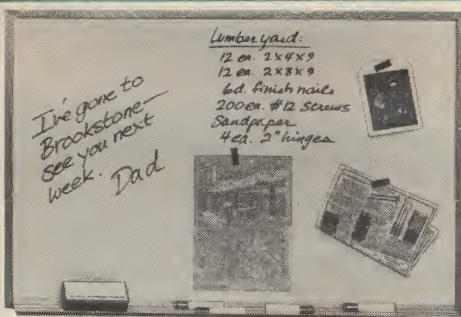 I've gone to
Brookstone—
see you next
week.
Dad
Lumber yard:
12 ea. 2x4x9
12 ea. 2x3x9
6d. finish nails
200 ea. #12 screws
Sandpaper
4 ea. 2" hinges